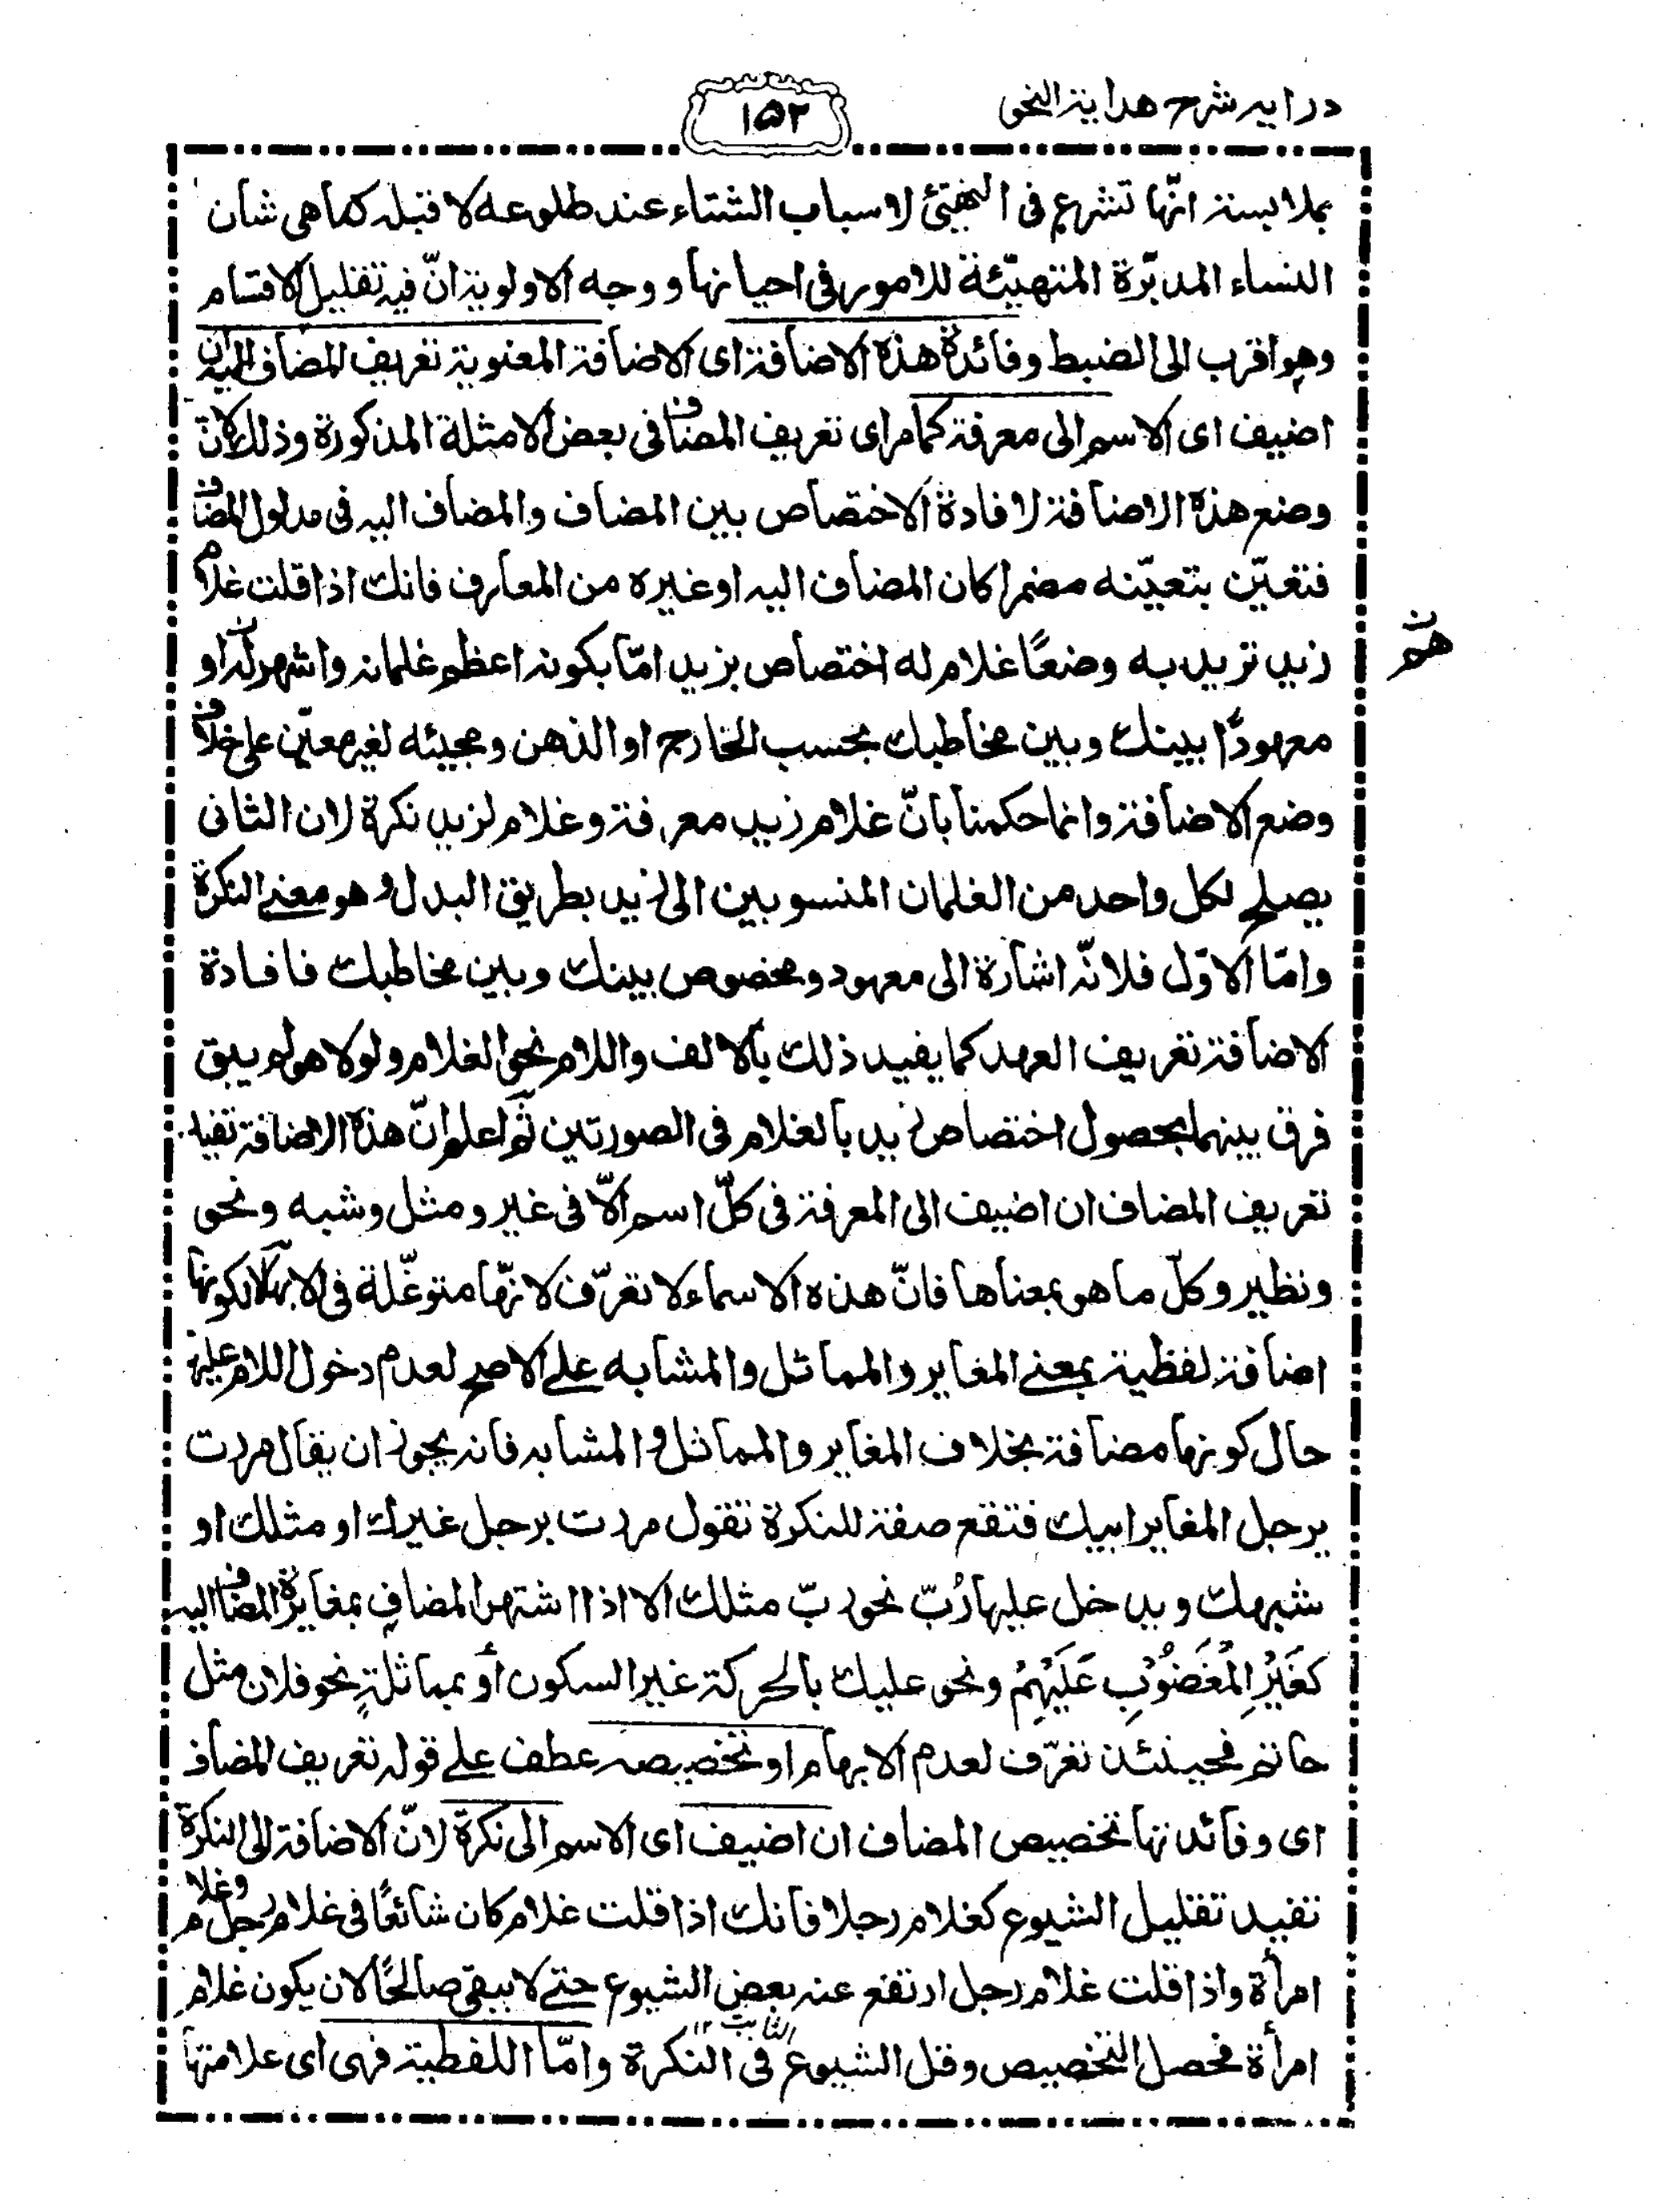 درایہ شرح هدایة النحو
۱۵۲
بملابسة انّها تشرع فى التهيّئ لاسباب الشتاء عند طلوعه لا قبله كما هى شأن
النساء المدبّرة المتهيّئة للامور فى احيانها ووجه الاولوية انّ فيه تقليل الاقسام
وهو اقرب الى الضبط وفائدة هذه الاضافة اى الاضافة المعنوية تعريف المضاف اليه ان
اضيف اى الاسم الى معرفة كما مر اى تعريف المضاف فى بعض الامثلة المذكورة وذلك لانّ
وضع هذه الاضافة لافادة الاختصاص بين المضاف والمضاف اليه فى مدلول المضاف
فتعيّن بتعيّنه مضمرا كان المضاف اليه او غيره من المعارف فانك اذا قلت غلام
زيد تريد به وضعًا غلام له اختصاص بزيد امّا بكونه اعظم غلمانه واشهر له او
معهودًا بينك وبين مخاطبك بحسب الخارج او الذهن ومجيئه لغير معيّن على خلاف
وضع الاضافة وانما حكمنا بانّ غلام زيد معرفة وغلام لزيد نكرة لان الثانى
يصلح لكل واحد من الغلمان المنسوبين الى زيد بطريق البدل وهو معنے النكرة
وامّا الاوّل فلانّه اشارة الى معهود ومخصوص بينك وبين مخاطبك فافادة
الاضافة تعريف العهد كما يفيد ذلك بالالف واللام نحو الغلام ولولا هو لم يبق
فرق بينهما بحصول اختصاص زيد بالغلام فى الصورتين ثم اعلم انّ هذه الاضافة تفيد
تعريف المضاف ان اضيف الى المعرفة فى كلّ اسم الّا فى غير ومثل وشبه ونحو
ونظير وكلّ ما هو بمعناها فانّ هذه الاسماء لا تعرّف لانّها متوغّلة فى الابهام لا لكونها
اضافة لفظية بمعنے المغاير والمماثل والمشابه علے الاصح لعدم دخول اللام عليها
حال كونها مضافة بخلاف المغاير والمماثل والمشابه فانه يجوز ان يقال مررت
برجل المغاير ابيك فتقع صفة للنكرة تقول مررت برجل غيرك او مثلك او
شبهك ويدخل عليها رُبّ نحو ربّ مثلك الا اذا اشتهر المضاف بمغايرة المضاف اليه
كغَيْرِ الْمَغْضُوْبِ عَلَيْهِمْ ونحو عليك بالحركة غير السكون أو بمماثلةٍ نحو فلان مثل
حاتم فحينئذ تعرّف لعدم الابهام او تخصيصه عطف علے قوله تعريف المضاف
اى وفائدتها تخصيص المضاف ان اضيف اى الاسم الى نكرة لانّ الاضافة الى النكرة
تفيد تقليل الشيوع كغلام رجلا فانك اذا قلت غلام كان شائعًا فى غلام رجل وغلام
امرأة واذا قلت غلام رجل ارتفع عنه بعض الشيوع حتے لا يبقى صالحًا لان يكون غلام
الثابت ۱۲
امرأة فحصل التخصيص وقل الشيوع فى النكرة وامّا اللفظية فهى اى علامتها